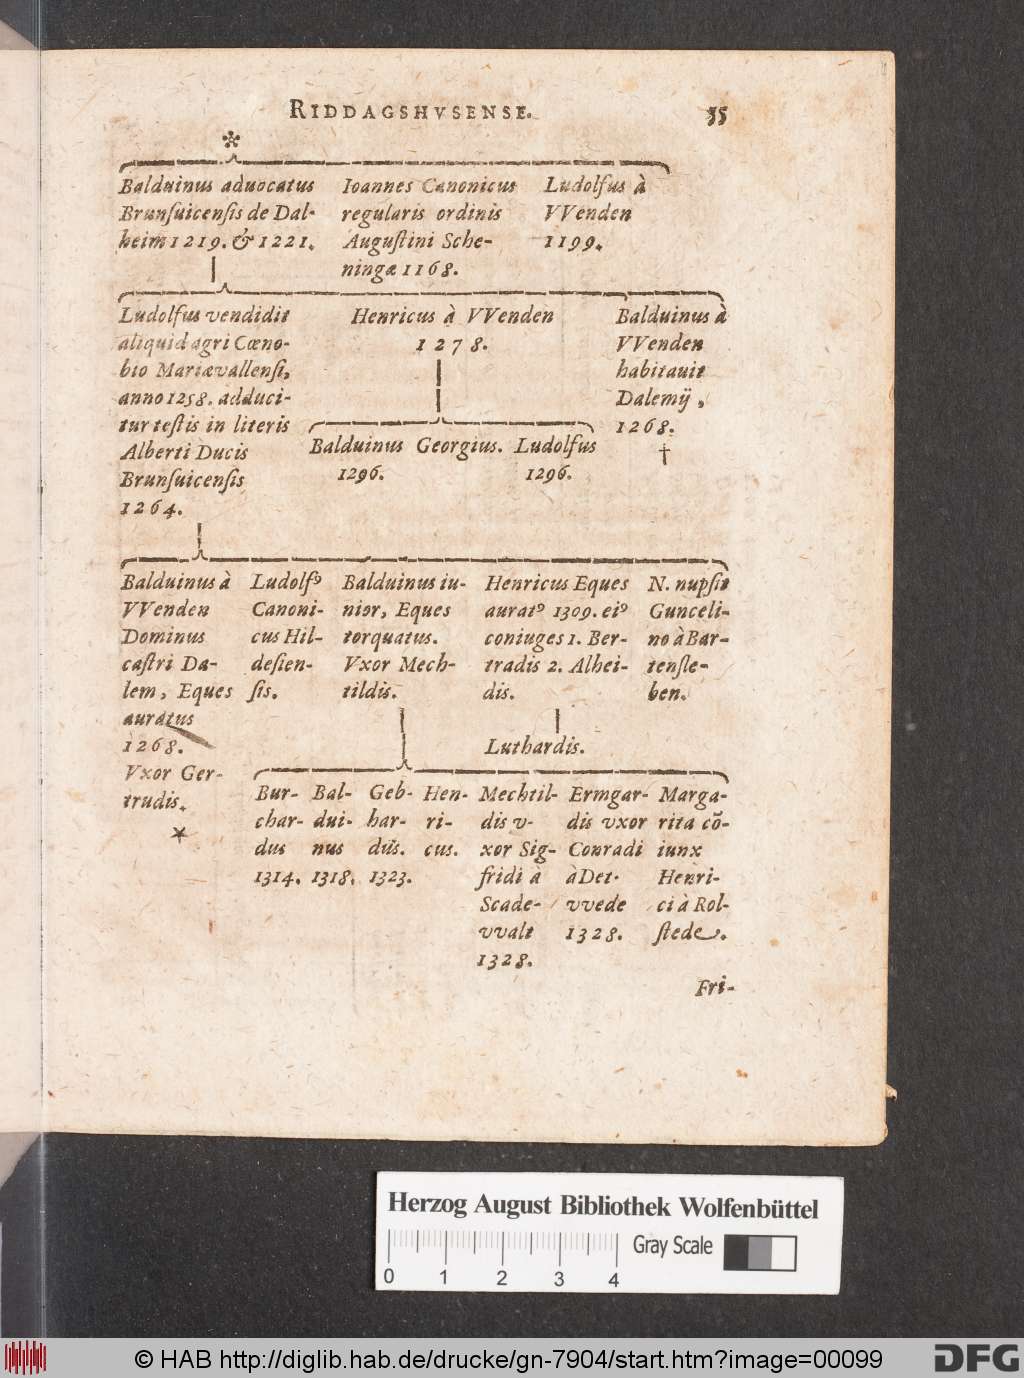 RIDDAGSHVSENSE. 35
Balduinus aduocatus
Brunſuicenſis de Dal-
heim 1219. & 1221.
Ioannes Canonicus
regularis ordinis
Auguſtini Sche-
ningæ 1168.
Ludolfus à
VVenden
1199.
Ludolfus vendidit
aliquid agri Cœno-
bio Mariævallenſi,
anno 1258. adduci-
tur teſtis in literis
Alberti Ducis
Brunſuicenſis
1264.
Henricus à VVenden
1278.
Balduinus à
VVenden
habitauit
Dalemij,
1268.
†
Balduinus
1296.
Georgius.
Ludolfus
1296.
Balduinus à
VVenden
Dominus
caſtri Da-
lem, Eques
auratus
1268.
Vxor Ger-
trudis.
Ludolfꝰ
Canoni-
cus Hil-
deſien-
ſis.
Balduinus iu-
nior, Eques
torquatus.
Vxor Mech-
tildis.
Henricus Eques
auratꝰ 1309. eiꝰ
coniuges 1. Ber-
tradis 2. Alhei-
dis.
Luthardis.
N. nupſit
Gunceli-
no à Bar-
tenſle-
ben.
Bur-
char-
dus
1314.
Bal-
dui-
nus
1318.
Geb-
har-
dus.
1323.
Hen-
ri-
cus.
Mechtil-
dis v-
xor Sig-
fridi à
Scade-
vvalt
1328.
Ermgar-
dis vxor
Conradi
à Det-
vvede
1328.
Marga-
rita cō-
iunx
Henri-
ci à Rol-
ſtede.
Fri-
Herzog August Bibliothek Wolfenbüttel
0 1 2 3 4
Gray Scale
© HAB http://diglib.hab.de/drucke/gn-7904/start.htm?image=00099
DFG